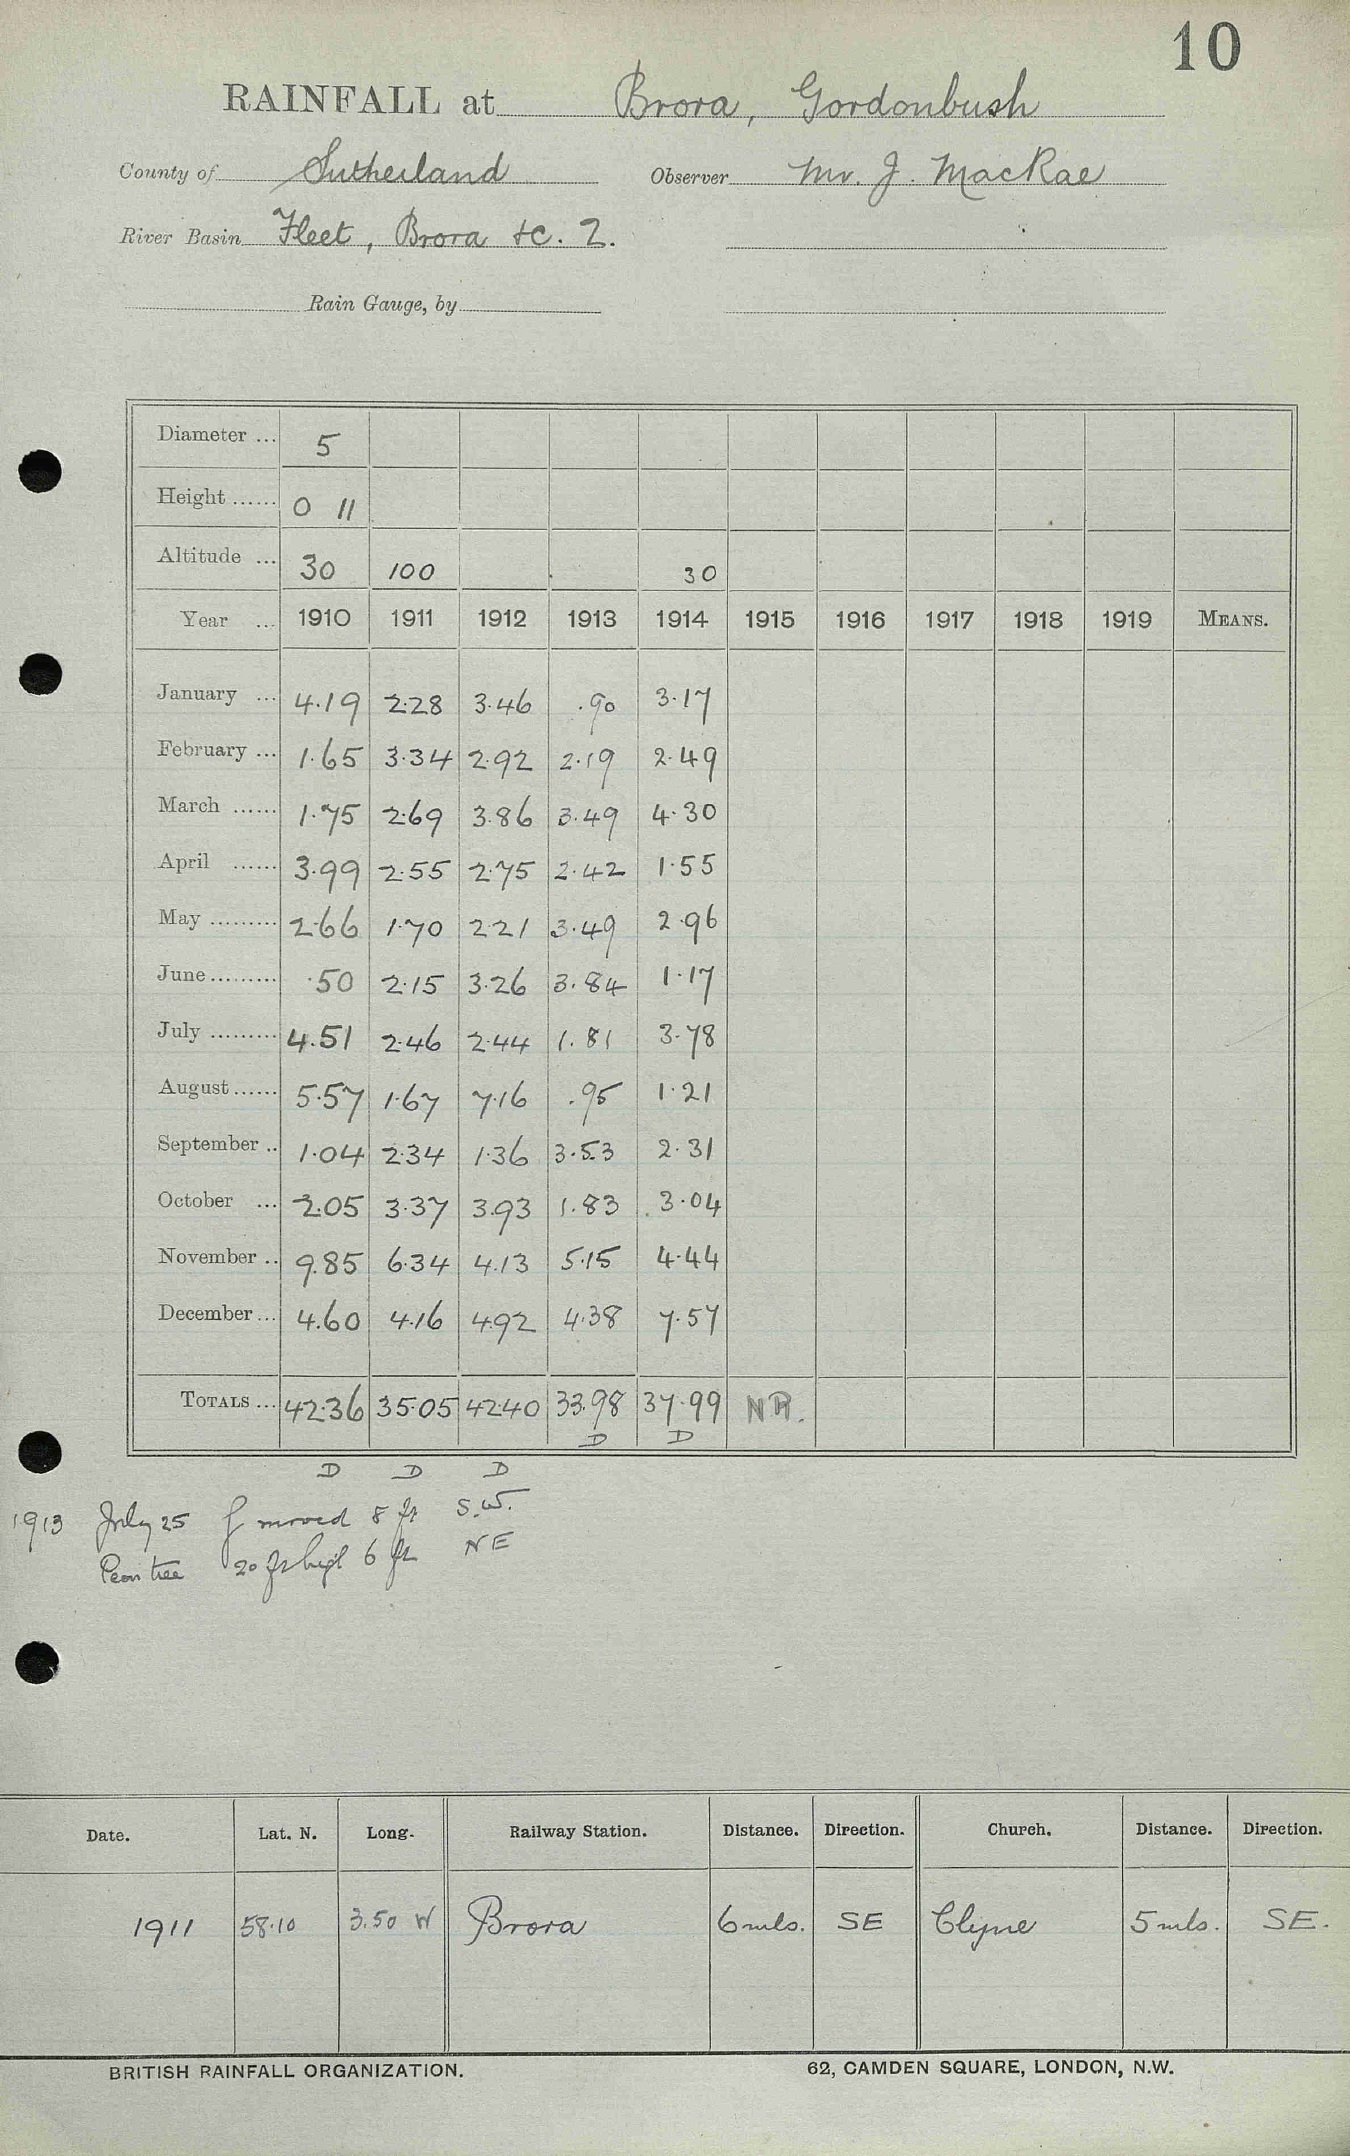 10
RAINFALL at Brora, Gordonbush
County of Sutherland Observer Mr. J. MacRae
River Basin Fleet, Brora &c. 2.
Rain Gauge, by
Diameter ... 5
Height ...... 0 11
Altitude ... 30 100 30
Year ... 1910 1911 1912 1913 1914 1915 1916 1917 1918 1919 MEANS.
January ... 4.19 2.28 3.46 .90 3.17
February ... 1.65 3.34 2.92 2.19 2.49
March ...... 1.75 2.69 3.86 3.49 4.30
April ...... 3.99 2.55 2.75 2.42 1.55
May ......... 2.66 1.70 2.21 3.49 2.96
June ......... .50 2.15 3.26 3.84 1.17
July ......... 4.51 2.46 2.44 1.81 3.78
August ...... 5.57 1.67 7.16 .95 1.21
September .. 1.04 2.34 1.36 3.53 2.31
October ... 2.05 3.37 3.93 1.83 3.04
November .. 9.85 6.34 4.13 5.15 4.44
December ... 4.60 4.16 4.92 4.38 7.57
TOTALS ... 42.36 35.05 42.40 33.98 37.99 NR.
D D
D D D
1913 July 25 g moved 8 ft S.W.
Pear tree 20 ft high 6 ft NE
Date. Lat. N. Long. Railway Station. Distance. Direction. Church. Distance. Direction.
1911 58.10 3.50 W Brora 6 mls. SE Clyne 5 mls. SE.
BRITISH RAINFALL ORGANIZATION. 62, CAMDEN SQUARE, LONDON, N.W.